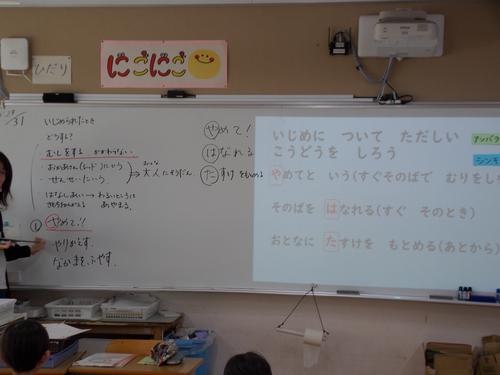 ひだり
にこにこ
いじめられたとき
どうする?
むしをする かかわらない
せんせいにいう
大人にそうだん
はなしあい→わるいというに
あやまる。
① やめて!!
やりかえす。
なかまをふやす。
やめて!
はなれる
たすけをもとめる
いじめに ついて ただしい
こうどうを しろう
やめてと いう(すぐそのばで むりをし
そのばを はなれる(すぐ そのとき)
おとなに たすけを もとめる(あとから)
アンパ
シンキ